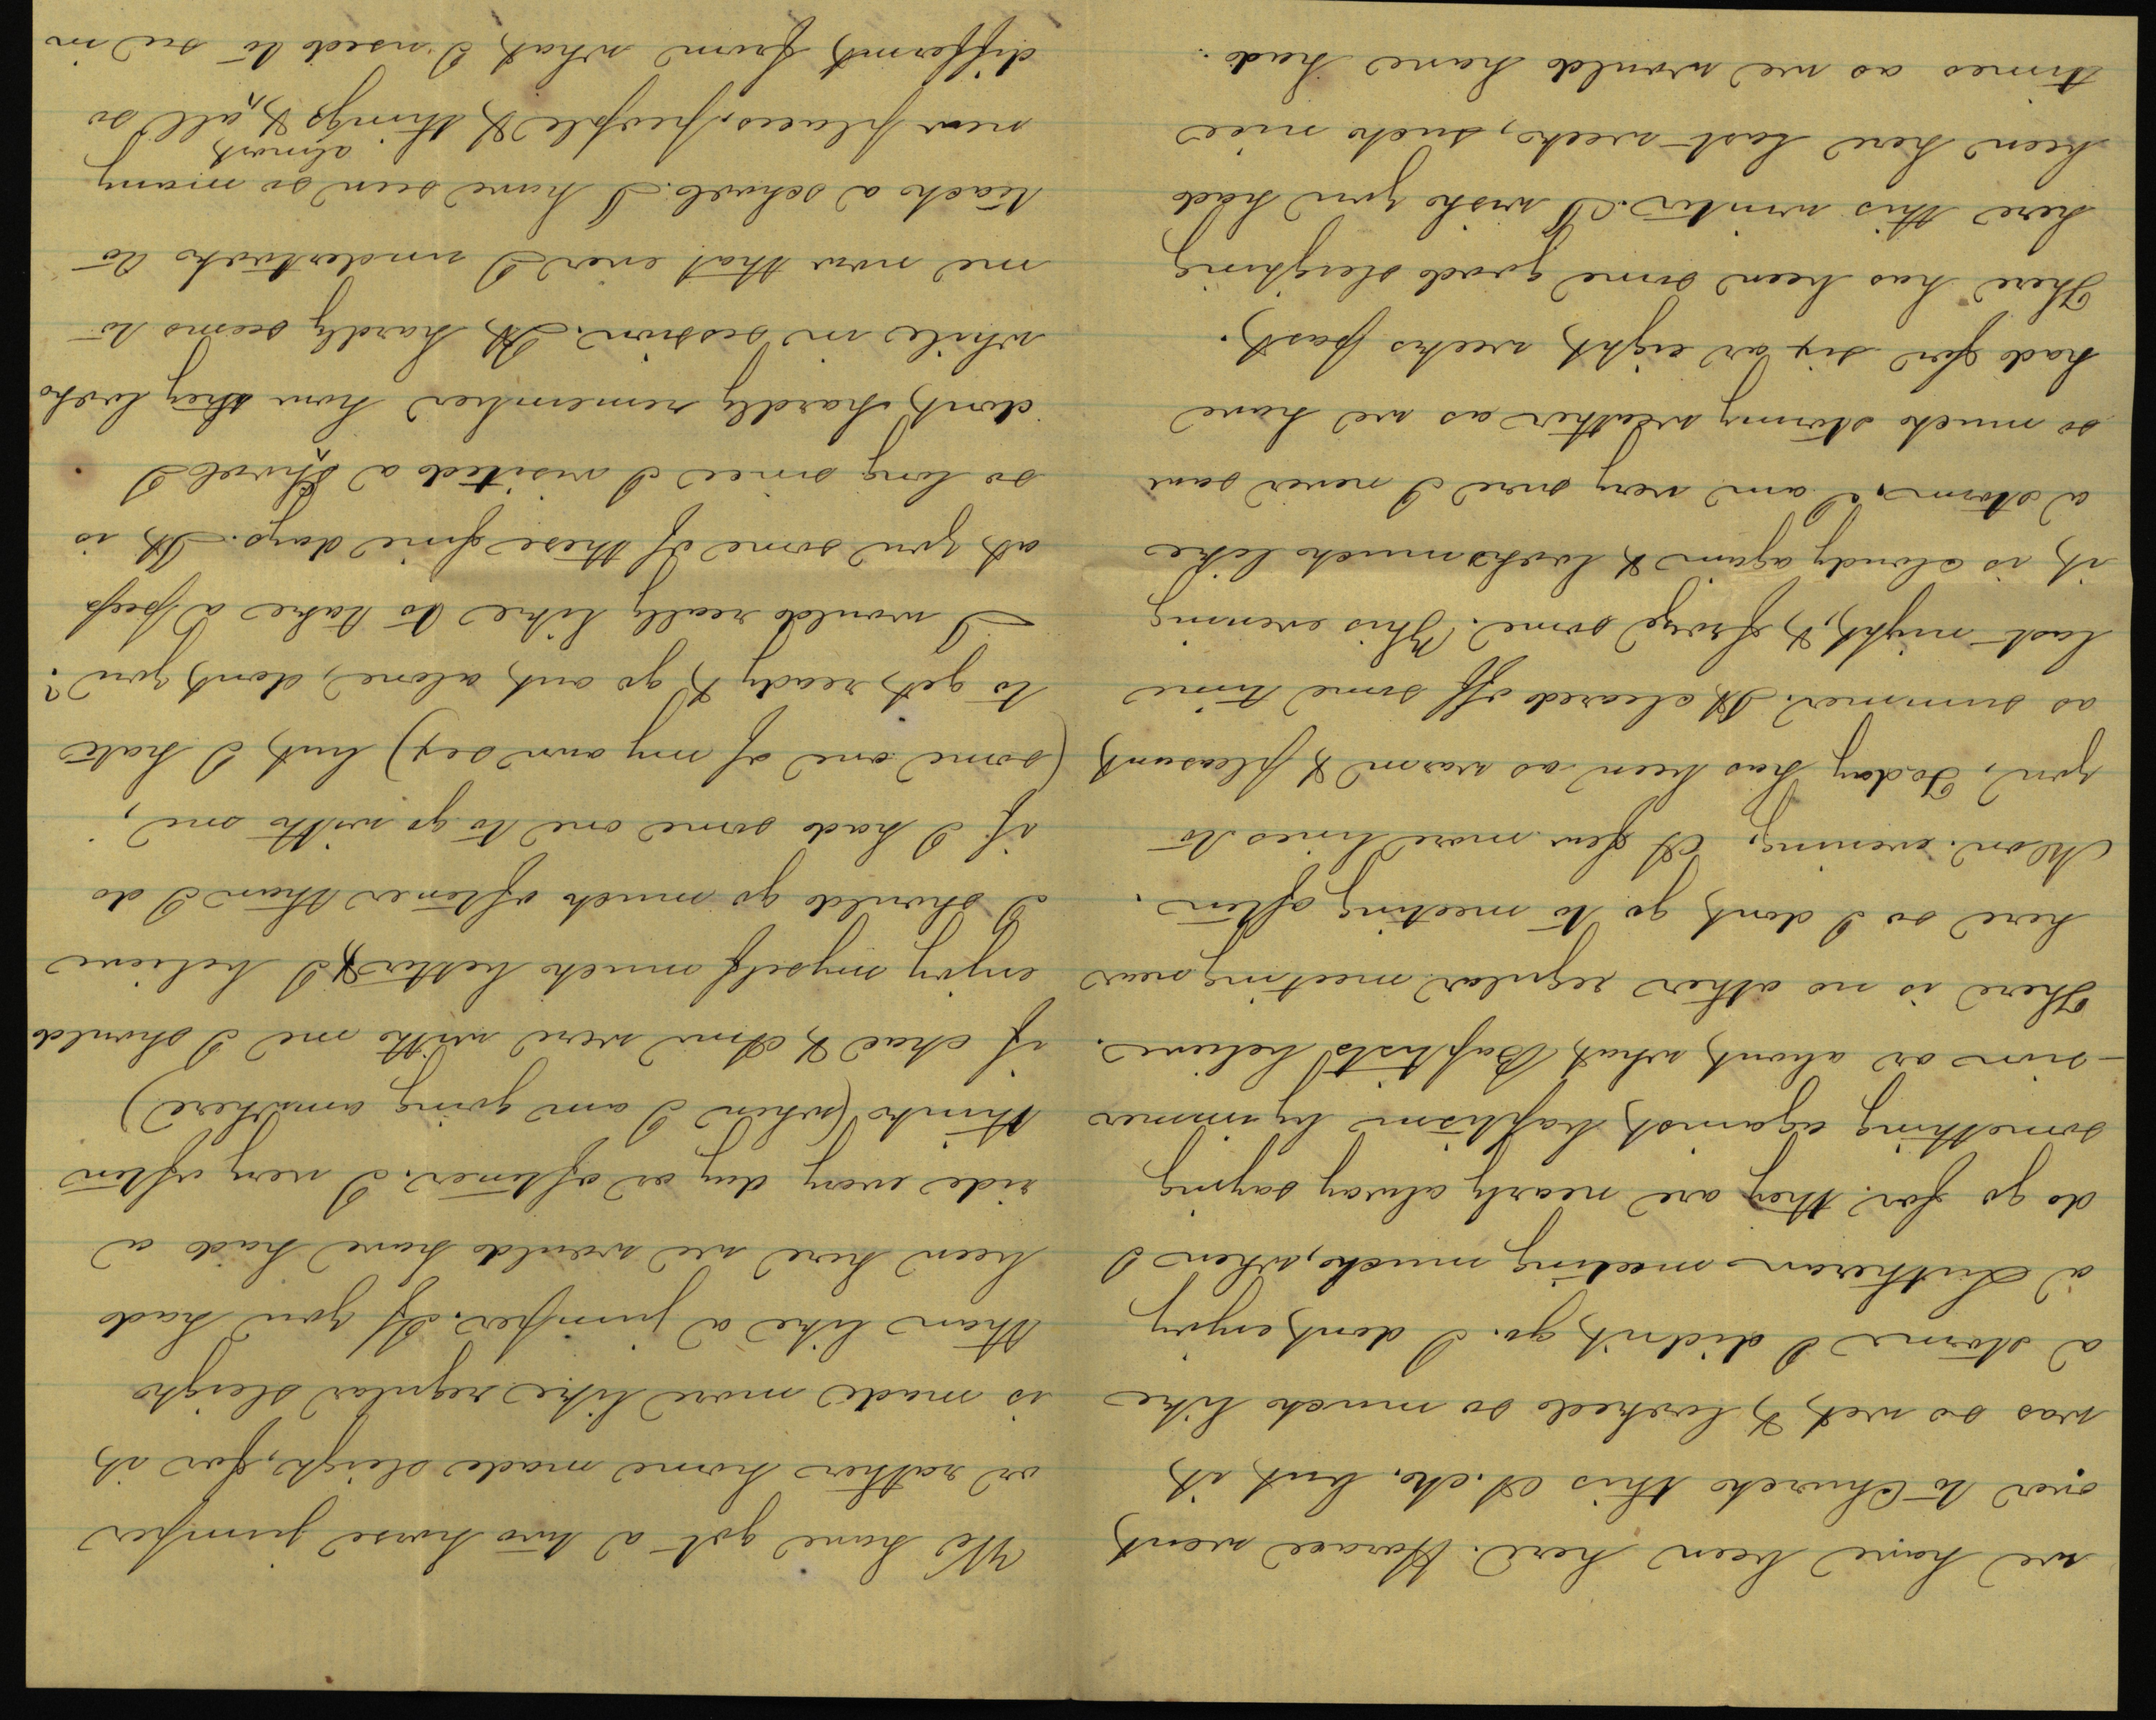 we have been here. Horace went
over to Church this A. M. but it
was so wet & looked so much like
a storm I didn't go. I dont enjoy
a Lutheran meeting much, when I
do go for they are nearly alway saying
something against baptism by immer
-sion or about what Baptists believe.
There is no other regular meeting near
here so I dont go to meeting often.
Mon. evening. A few more lines to
you. Today has been as warm & pleasant
as summer. It cleared off some time
last night, & froze some. This evening
it is cloudy again & looks much like
a storm. I am very sure I never saw
so much stormy weather as we have
had for six or eight weeks past.
There has been some good sleighing
here this winter. I wish you had
been here last week, such nice
times as we would have had.
We have got a two horse jumper
or rather home made sleigh, for it
is made more like regular sleigh
than like a jumper. If you had
been here we would have had a
ride every day or oftener. I very often
think (when I am going anywhere)
if Chae & Ann were with me I should
enjoy myself much better, & I believe
I should go much oftener than I do
if I had some one to go with me,
(some one of my own sex) but I hate
to get ready & go out alone, dont you?
I would really like to take a peep
at you some of these fine days. It is
so long since I visited a school I
dont hardly remember how they look
while in session. It hardly seems to
me now that ever I undertook to
teach a school. I have seen so many
new places, people & things & almost all so
different from what I used to see in